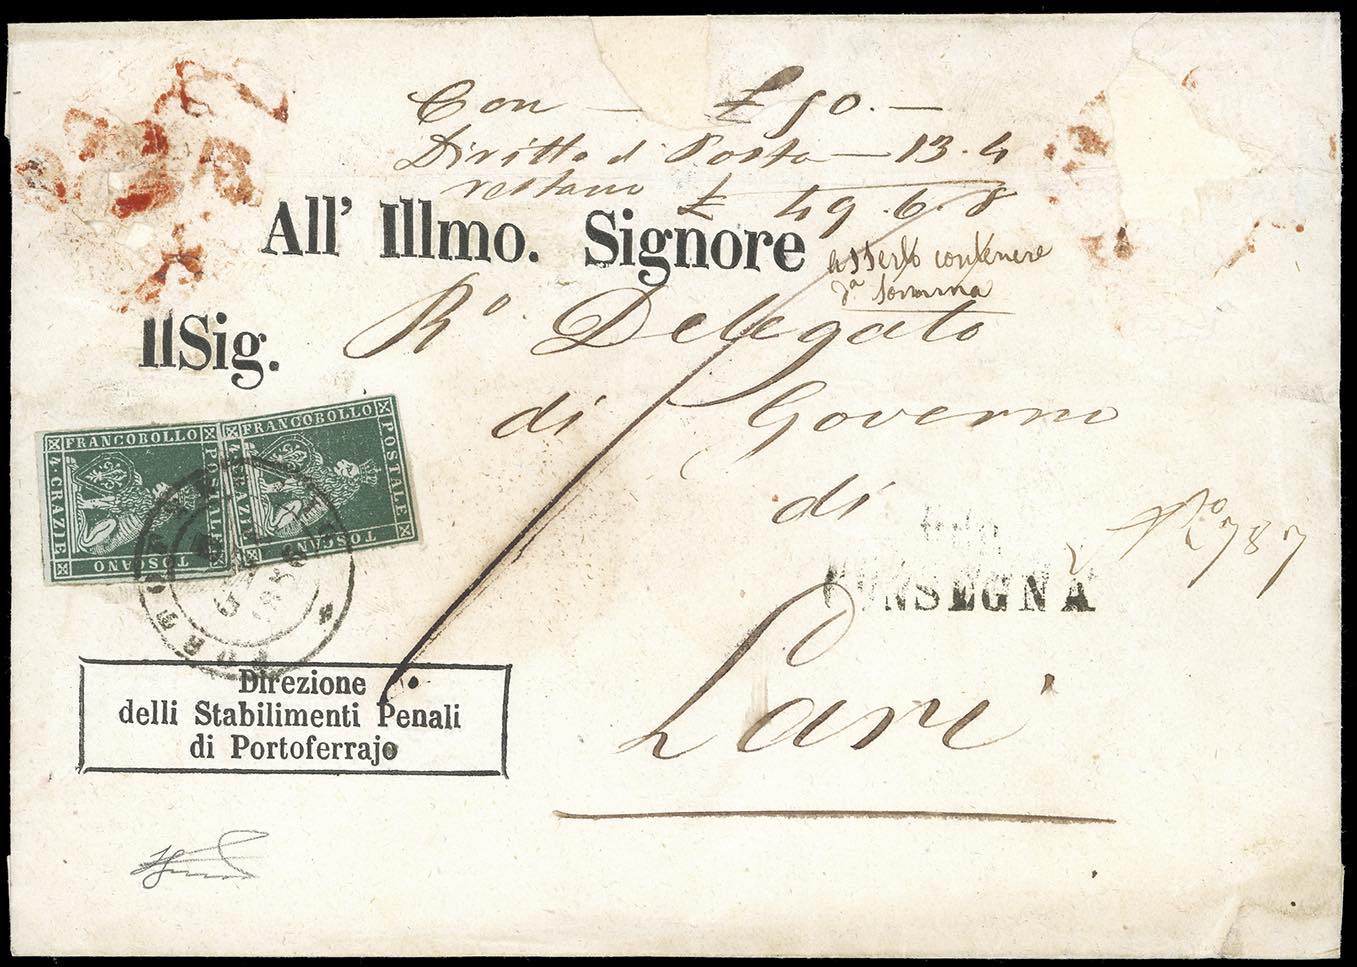 Con — £ 50. —
Diritto di Posta — 13. 4
restano £ 49. 6. 8
All' Illmo. Signore
asserto contenere
da. somma
IlSig. R.o Delegato
di Governo
di
N.o 787
CONSEGNA
Lari
FRANCOBOLLO POSTALE TOSCANO 4 CRAZIE
FRANCOBOLLO POSTALE TOSCANO 4 CRAZIE
Direzione
delli Stabilimenti Penali
di Portoferrajo